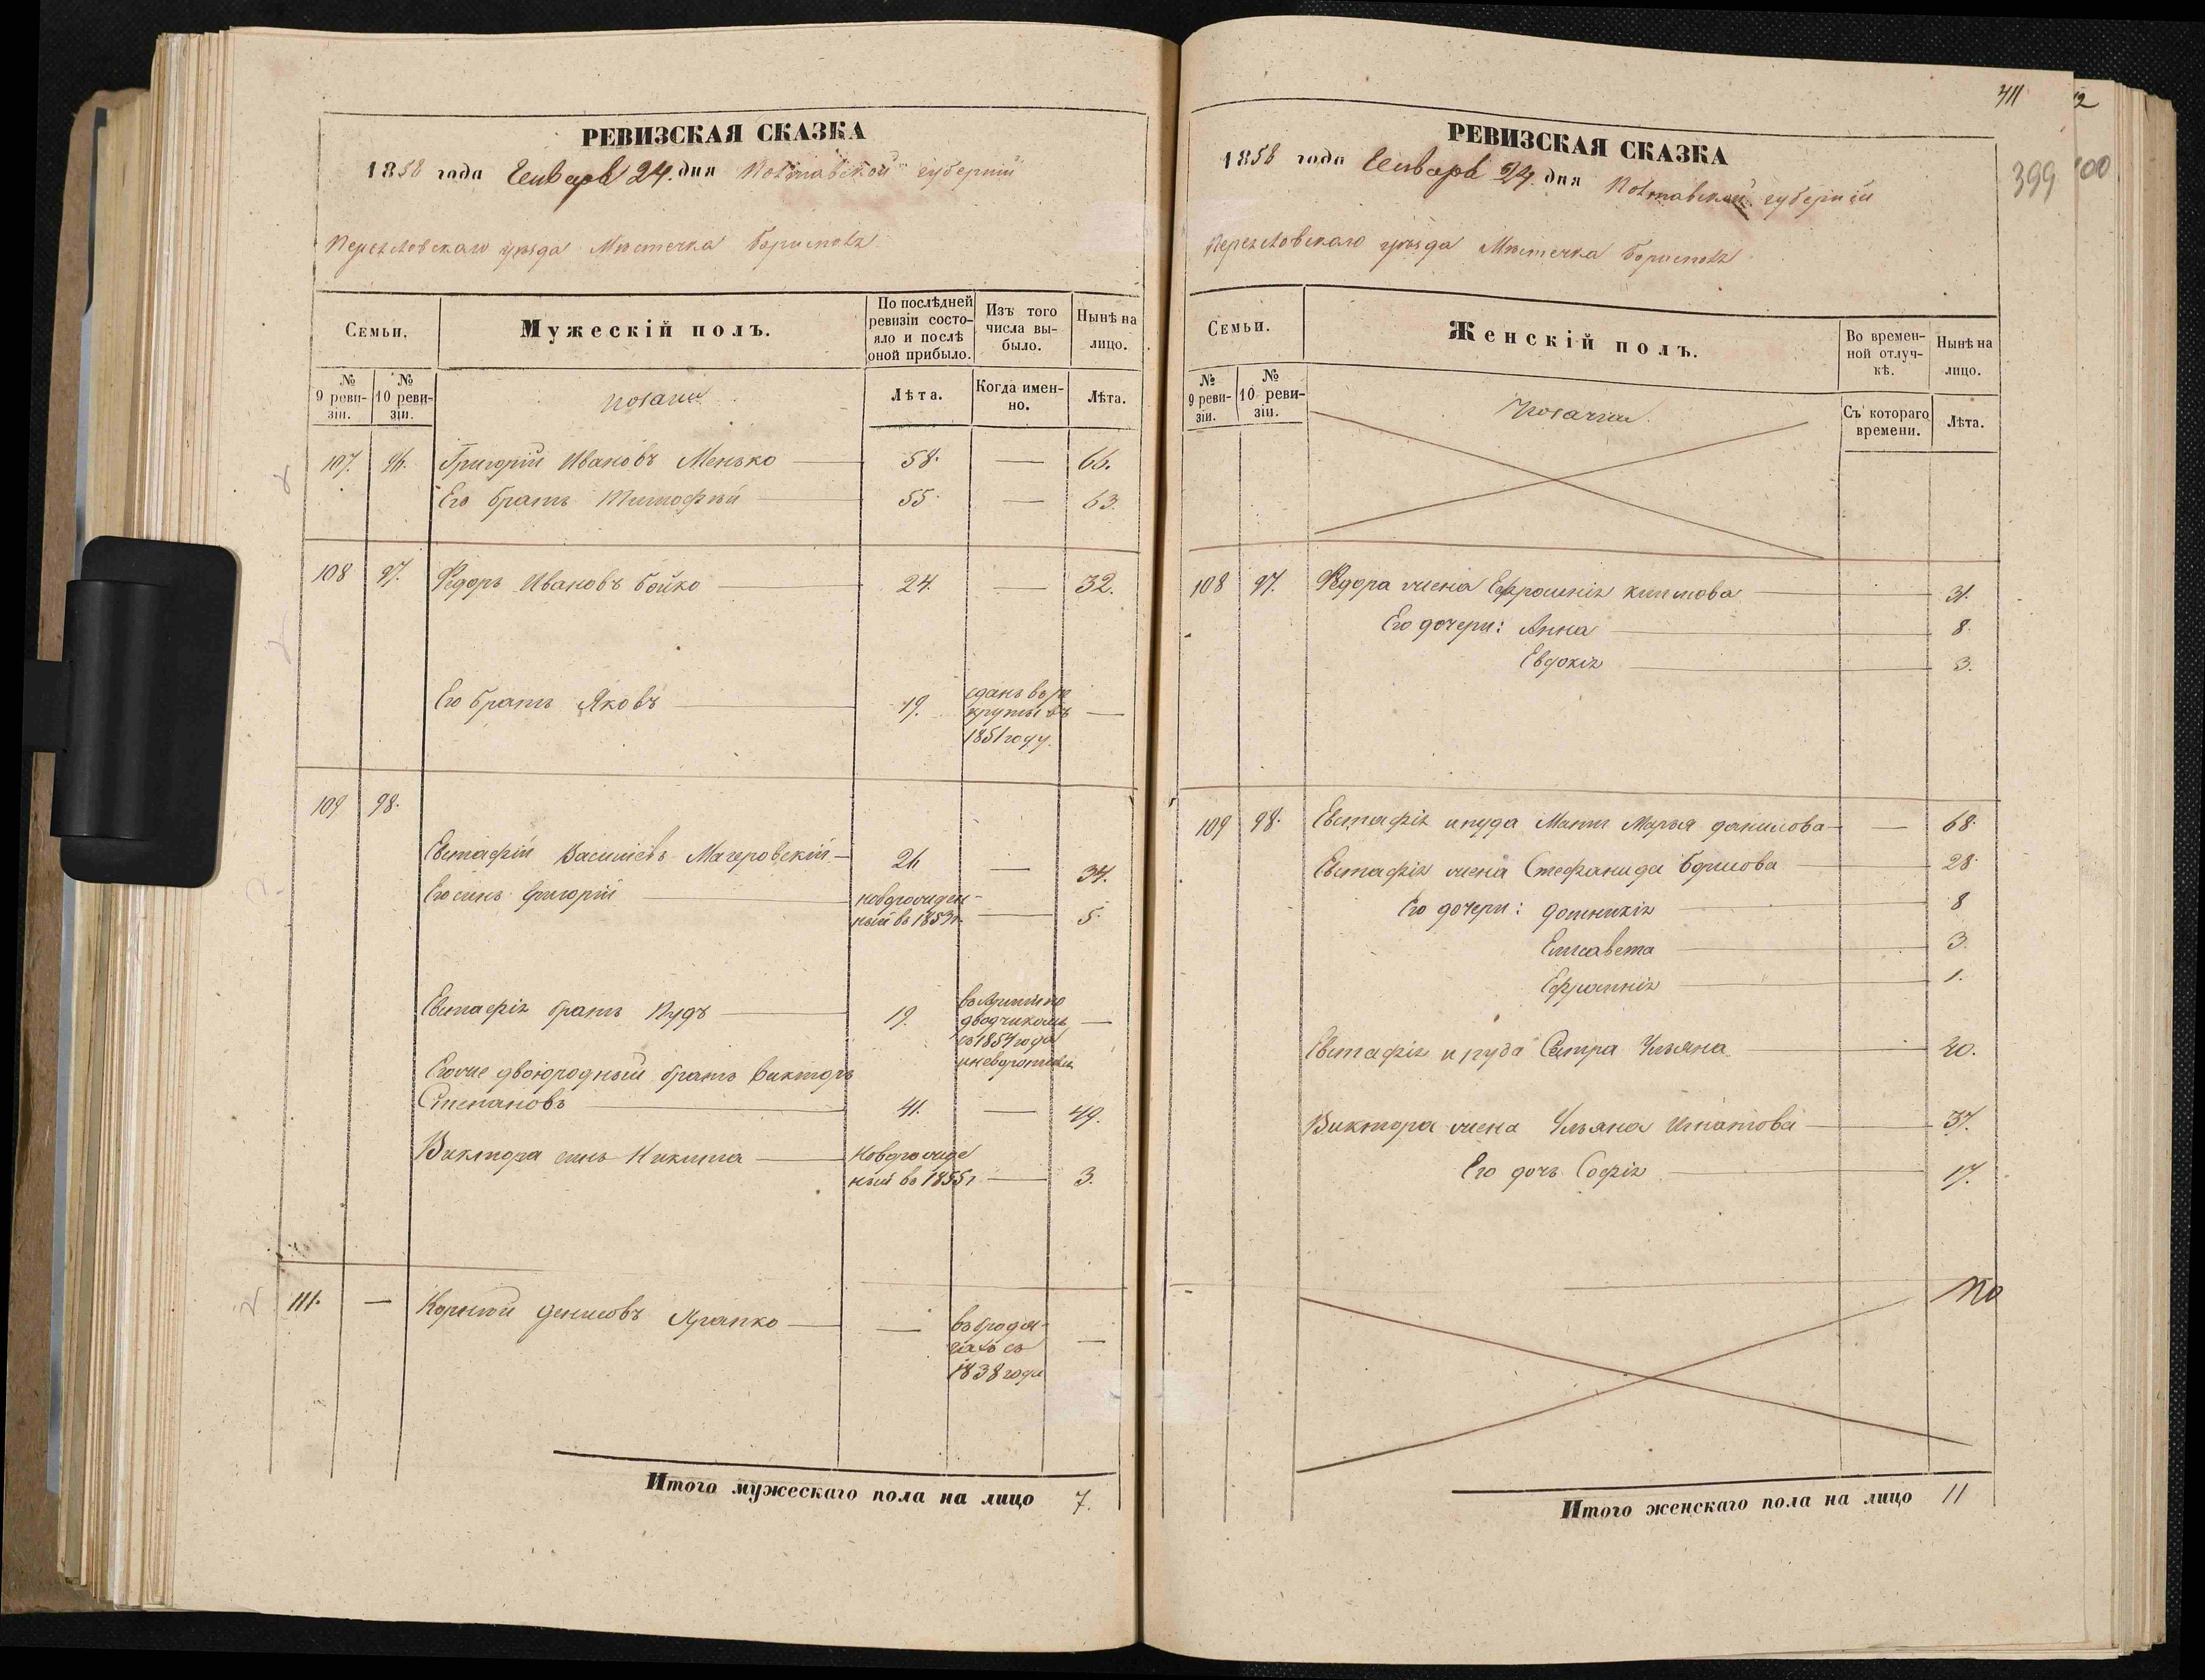 РЕВИЗСКАЯ СКАЗКА
1858 года Генваря 24. дня Полтавской губерніи
Переяловскаго уѣзда Мѣстечка Борисполя
Семьи.
Мужескій полъ.
По послѣдней ревизіи состояло и послѣ оной прибыло.
Изъ того числа выбыло.
Нынѣ на лицо.
№ 9 ревизіи.
№ 10 ревизіи.
козаки
Лѣта.
Когда именно.
Лѣта.
107. 96. Григорій Ивановъ Менько — 58. — 66.
Его братъ Тимофѣй — 55. — 63.
108 97. Федоръ Ивановъ бойко — 24. — 32.
Его братъ Яковъ — 19. сданъ въ рекруты въ 1851 году. —
109 98.
Евстафій Василіевъ Магеровскій — 26 — 34.
Его синъ Григорій — новорожденный въ 1853 г. — 5.
Евстафія братъ Пудъ — 19. съ 1854 года —
Егоже двоюродный братъ Викторъ
Степановъ — 41. — 49.
Виктора синъ Никита — новорожденый въ 1855 г — 3.
111. — Корнилій Денисовъ — — въ бродягахъ съ 1838 года —
Итого мужескаго пола на лицо 7.
411
399
РЕВИЗСКАЯ СКАЗКА
1858 года Генваря 24. дня Полтавской губерніи
Переяловскаго уѣзда Мѣстечка Борисполя
Семьи.
Женскій полъ.
Во временной отлучкѣ.
Нынѣ на лицо.
№ 9 ревизіи.
№ 10 ревизіи.
козачки.
Съ котораго времени.
Лѣта.
108 97. Федора жена Ефросинія климова — 31.
Его дочери: Анна — 8.
Евдокія — 3.
109 98. Евстафія и пуда Мать Марья данилова — — 68.
Евстафія жена Стефанида — 28.
Его дочери: домникія — 8
Елисавета — 3.
Ефросинія — 1.
Евстафія и пуда Сестра Ульяна — 20.
Виктора жена Ульяна Игнатова — 37.
Его дочь Софія — 17.
Итого женскаго пола на лицо 11